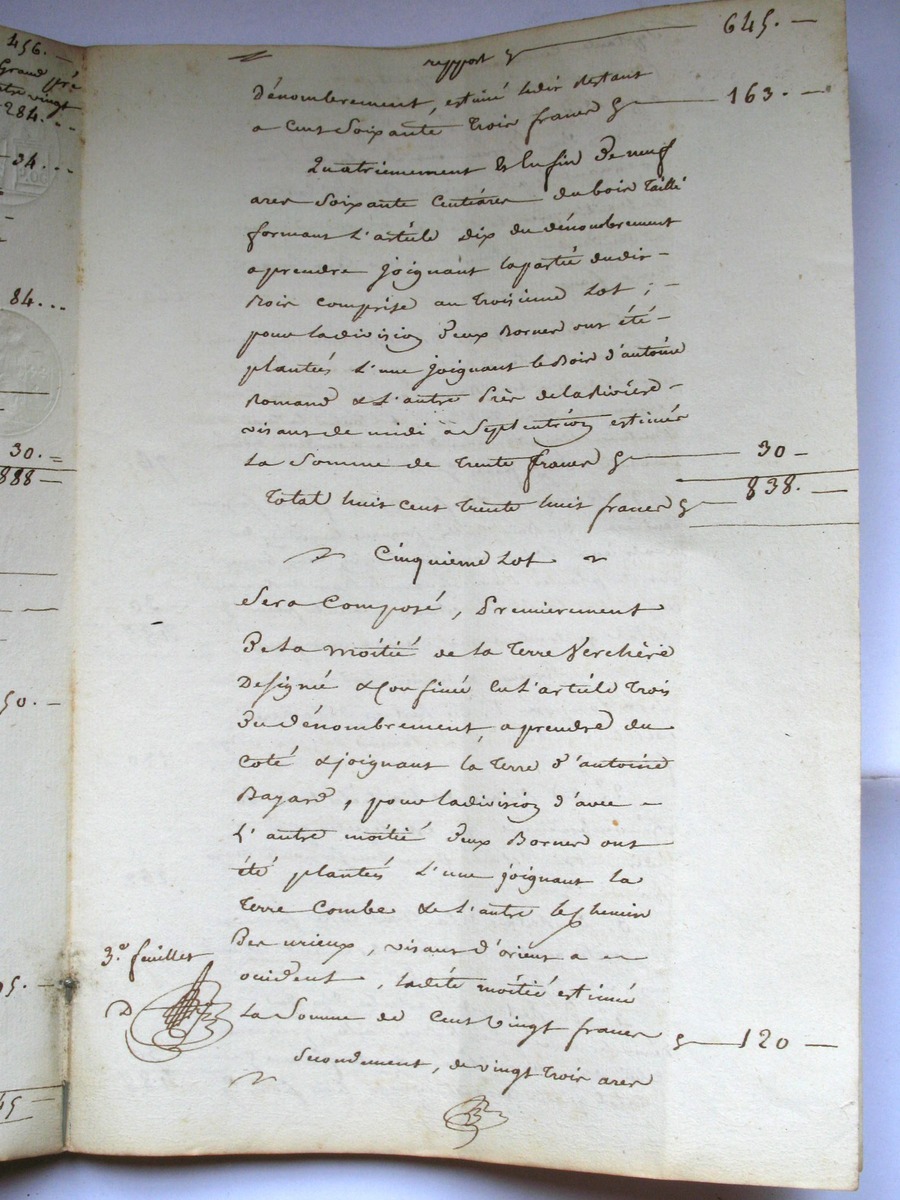 456. -
Grand pré
284. ..
34. ..
84...
30. =
888 -
50. -
45
report 645. -
Dénombrement, estimé ledit Restant
a Cent Soixante Trois francs 163. -
Quatriemement & Enfin De neuf
ares Soixante Centiares du bois Taillé
formant L'article Dix du dénombrement
a prendre joignant la partie dudit -
Bois comprise au Troisieme Lot ; -
pour la division Deux Bornes ont été -
plantées L'une joignant le Bois d'antoine
Romand & L'autre Près de la Rivière -
visant de midi à Septentrion estimés
La Somme de Trente francs 30 -
Total huit cent Trente huit francs 838. -
Cinquieme Lot
Sera Composé, Premierement
De la moitié de la Terre Verchère
Designé & Confiné en L'article Trois
Du dénombrement, a prendre du
Coté & joignant la Terre D'antoine
Bayard, pour la division d'avec -
L'autre moitié Deux Bornes ont
été plantées L'une joignant la
Terre Combe & L'autre le chemin
Des urieux, visant d'orient a
occident, ladite moitié estimée
La Somme de Cent vingt francs 120 -
3.e feuillet
Secondement, de vingt Trois ares